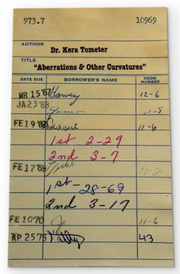 973.7 10969
AUTHOR
Dr. Kera Tometer
TITLE
"Aberrations & Other Curvatures"
DATE DUE BORROWER'S NAME ROOM NUMBER
MR 15'67 12-6
JA 23'68 11-8
FE 19 11-6
1st 2-29
2nd 3-7
FE 17'69 11-2
1st -28-69
2nd 3-17
FE 10 70 11-6
AP 25'75 Kathy 43